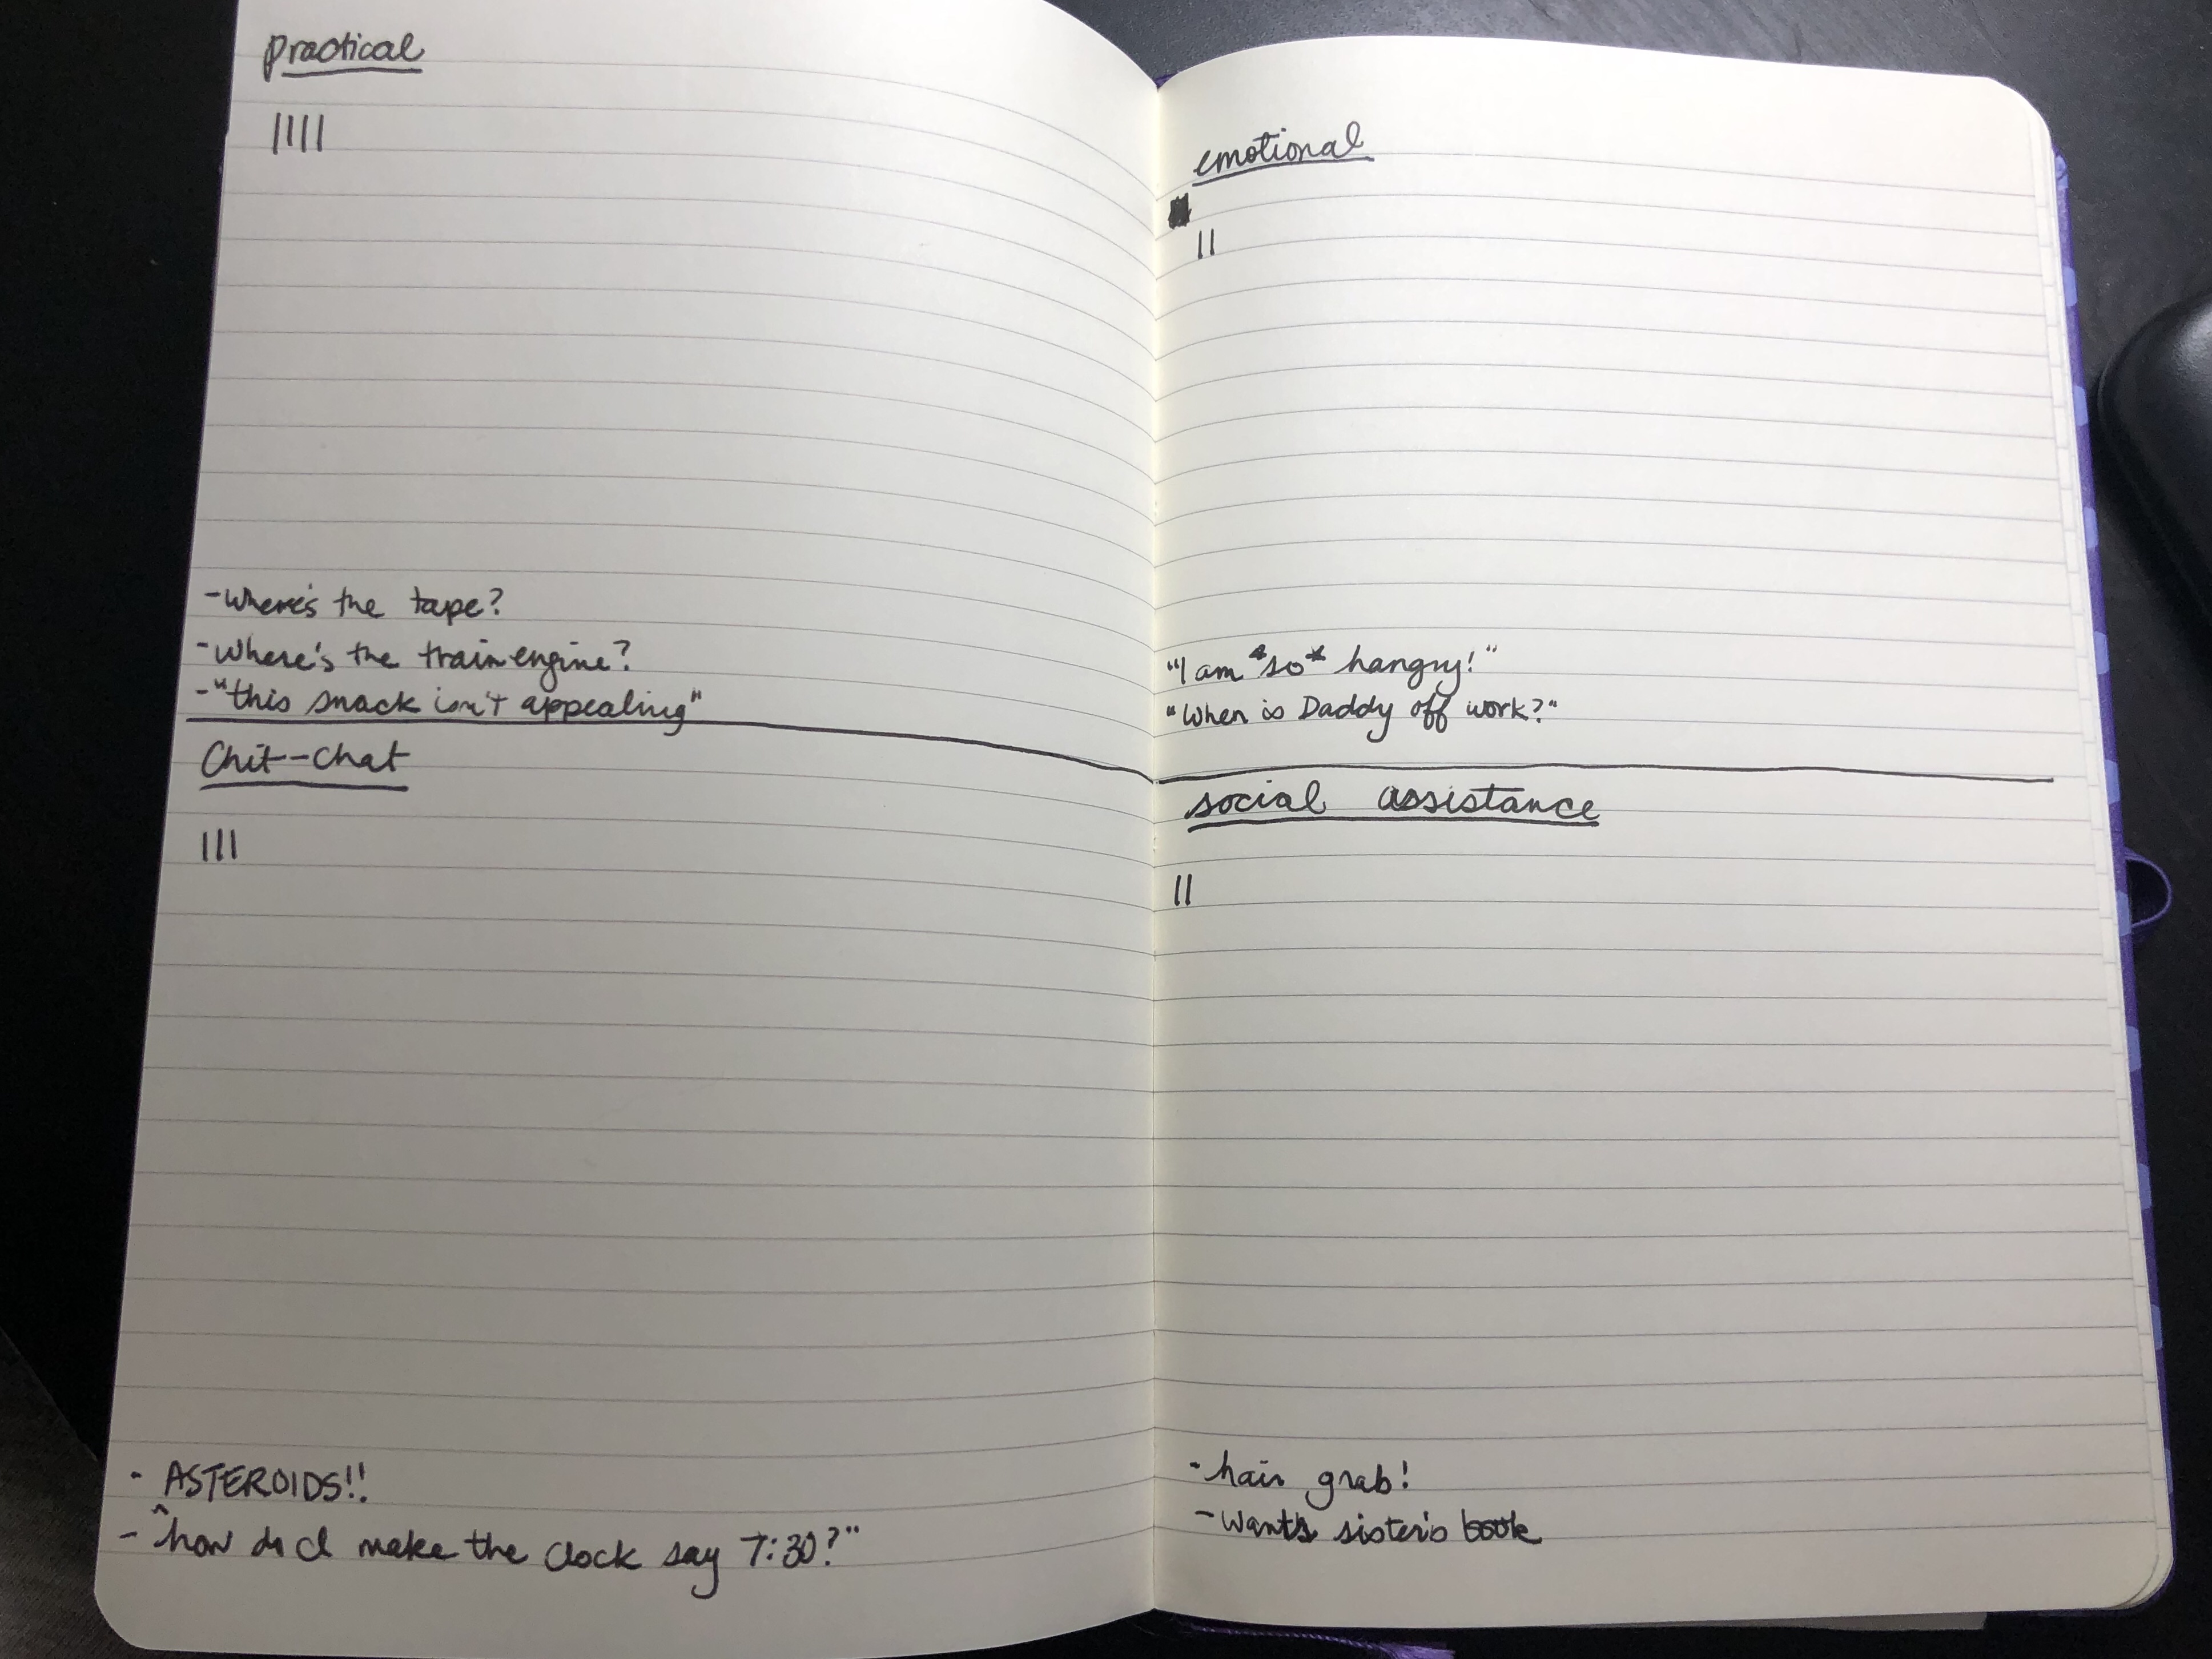 practical
||||
-where's the tape?
-where's the train engine?
-"this snack isn't appealing"
Chit-chat
|||
- ASTEROIDS!!
- "how do I make the clock say 7:30?"
emotional
||
"I am *so* hangry!"
"When is Daddy off work?"
social assistance
||
-hair grab!
-wants sister's book